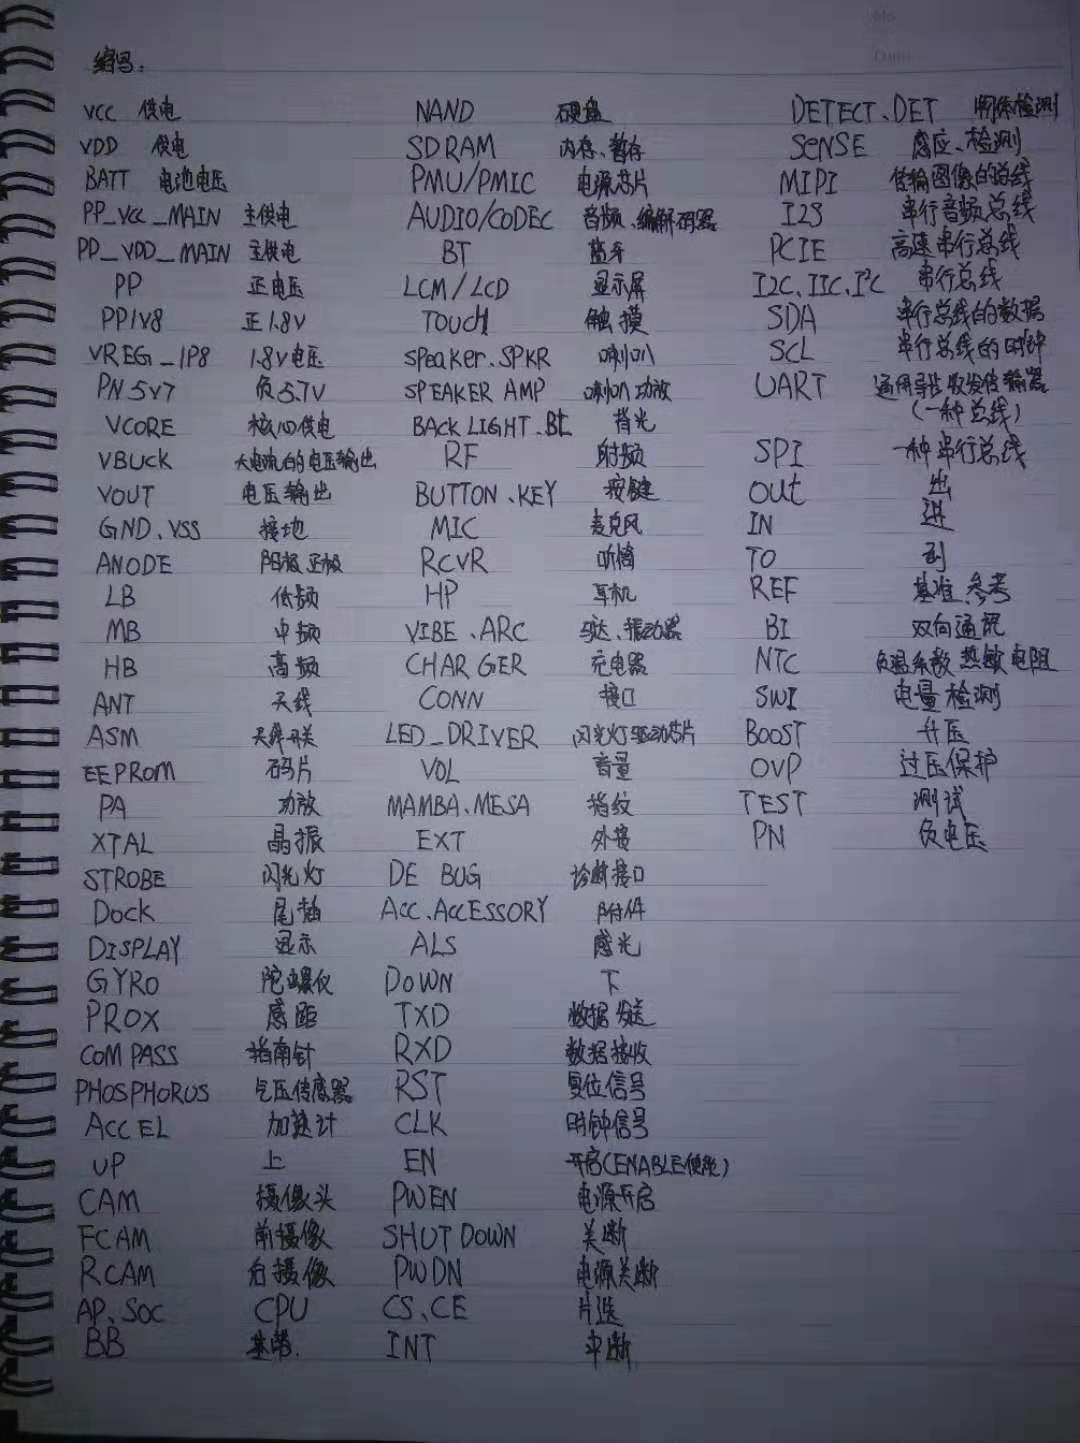 缩写:
VCC 供电
VDD 供电
BATT 电池电压
PP_VCC_MAIN 主供电
PP_VDD_MAIN 主供电
PP 正电压
PP1V8 正1.8V
VREG_1P8 1.8V电压
PN5V7 负5.7V
VCORE 核心供电
VBUCK 大电流的电压输出
VOUT 电压输出
GND、VSS 接地
ANODE 阳极正极
LB 低频
MB 中频
HB 高频
ANT 天线
ASM 天线开关
EEPROM 码片
PA 功放
XTAL 晶振
STROBE 闪光灯
Dock 尾插
DISPLAY 显示
GYRO 陀螺仪
PROX 感距
COMPASS 指南针
PHOSPHORUS 气压传感器
ACCEL 加速计
UP 上
CAM 摄像头
FCAM 前摄像
RCAM 后摄像
AP、SOC CPU
BB 基带.
NAND 硬盘
SDRAM 内存、暂存
PMU/PMIC 电源芯片
AUDIO/CODEC 音频、编解码器
BT 蓝牙
LCM/LCD 显示屏
TOUCH 触摸
SPeaKer、SPKR 喇叭
SPEAKER AMP 喇叭功放
BACK LIGHT、BL 背光
RF 射频
BUTTON、KEY 按键
MIC 麦克风
RCVR 听筒
HP 耳机
VIBE、ARC 马达、振动器
CHARGER 充电器
CONN 接口
LED_DRIVER 闪光灯驱动芯片
VOL 音量
MAMBA、MESA 指纹
EXT 外接
DE BUG 诊断接口
ACC、ACCESSORY 附件
ALS 感光
DOWN 下
TXD 数据发送
RXD 数据接收
RST 复位信号
CLK 时钟信号
EN 开启(ENABLE使能)
PWEN 电源开启
SHUT DOWN 关断
PWDN 电源关断
CS、CE 片选
INT 中断
DETECT、DET 物体检测
SENSE 感应、检测
MIPI 传输图像的总线
I2S 串行音频总线
PCIE 高速串行总线
I2C、IIC、I²C 串行总线
SDA 串行总线的数据
SCL 串行总线的时钟
UART 通用异步收发传输器
(一种总线)
SPI 一种串行总线
OUT 出
IN 进
TO 到
REF 基准、参考
BI 双向通讯
NTC 负温系数热敏电阻
SWI 电量检测
BOOST 升压
OVP 过压保护
TEST 测试
PN 负电压